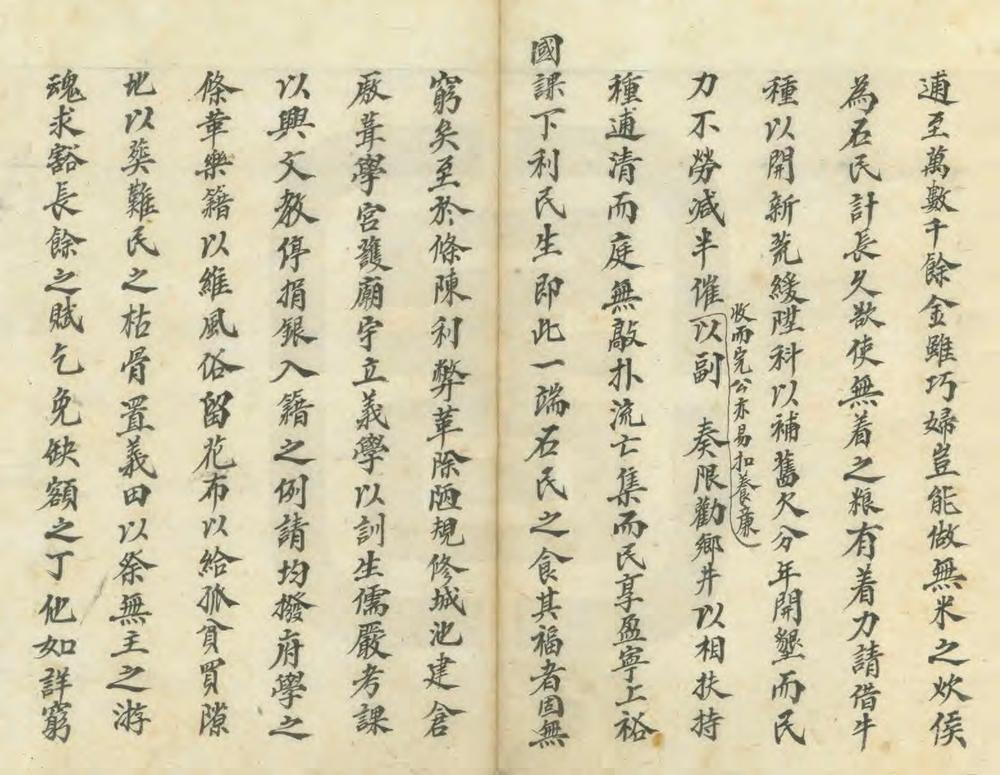 逋至萬數千餘金雖巧婦豈能做無米之炊侯
為石民計長久欲使無着之粮有着力請借牛
種以開新荒緩陞科以補舊欠分年開墾而民
力不勞减半催以副 奏限勸鄉井以相扶持
收而完公亦易扣養廉
種逋清而庭無敲扑流亡集而民享盈寧上裕
國課下利民生即此一端石民之食其福者固無
窮矣至於條陳利弊革除陋規修城池建倉
厫葺學宮護廟宇立義學以訓生儒嚴考課
以興文教停捐銀入籍之例請均撥府學之
條革樂籍以維風俗留花布以給孤貧買隙
地以葬難民之枯骨置義田以祭無主之游
魂求豁長餘之賦乞免缺額之丁他如詳窮